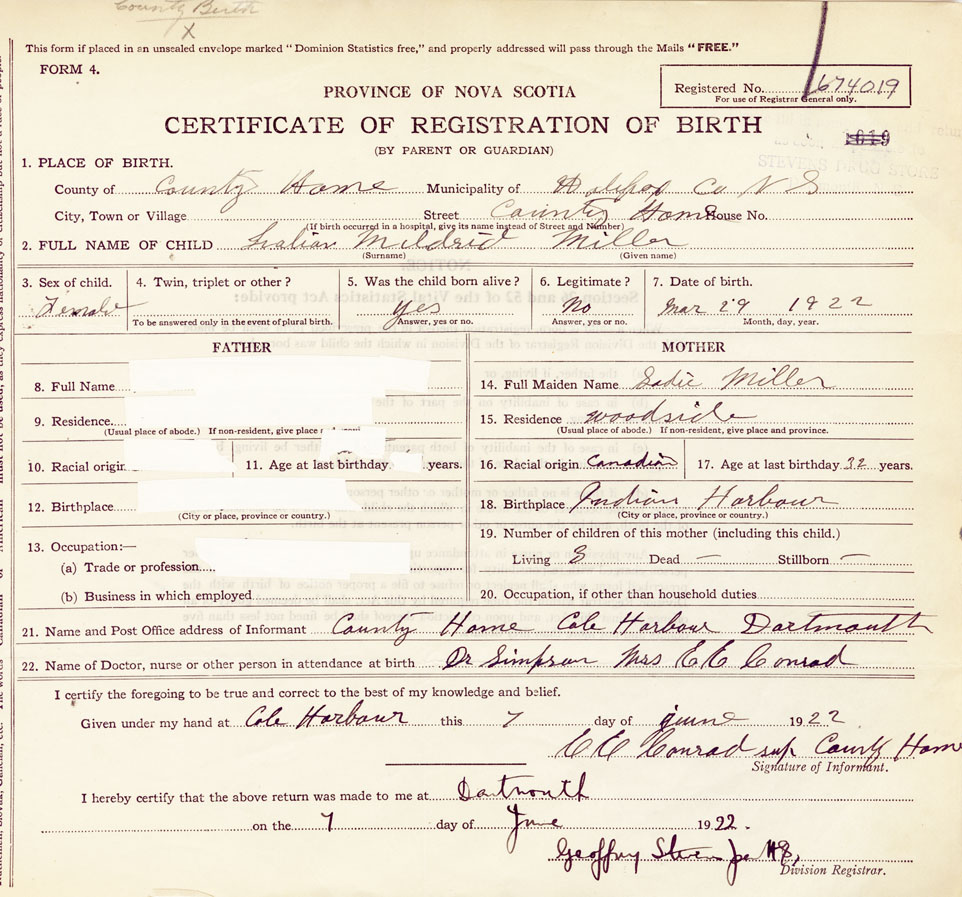 County Birth
X
This form if placed in an unsealed envelope marked "Dominion Statistics free," and properly addressed will pass through the Mails "FREE."
FORM 4.
Registered No. 674019
For use of Registrar General only.
PROVINCE OF NOVA SCOTIA
CERTIFICATE OF REGISTRATION OF BIRTH
(BY PARENT OR GUARDIAN)
STEVENS DRUG STORE
1. PLACE OF BIRTH.
County of County Home Municipality of Halifax Co N S
City, Town or Village Street County Home House No.
(If birth occurred in a hospital, give its name instead of Street and Number)
2. FULL NAME OF CHILD Lralian Mildrid Miller
(Surname) (Given name)
3. Sex of child. 4. Twin, triplet or other? 5. Was the child born alive? 6. Legitimate? 7. Date of birth.
Female Yes No Mar 29 1922
To be answered only in the event of plural birth. Answer, yes or no. Answer, yes or no. Month, day, year.
FATHER MOTHER
8. Full Name 14. Full Maiden Name Sadie Miller
9. Residence. 15. Residence Woodside
(Usual place of abode.) If non-resident, give place (Usual place of abode.) If non-resident, give place and province.
10. Racial origin 11. Age at last birthday years. 16. Racial origin Canadian 17. Age at last birthday 32 years.
12. Birthplace 18. Birthplace Indian Harbour
(City or place, province or country.) (City or place, province or country.)
13. Occupation:— 19. Number of children of this mother (including this child.)
(a) Trade or profession Living Dead — Stillborn —
(b) Business in which employed 20. Occupation, if other than household duties
21. Name and Post Office address of Informant County Home Cole Harbour Dartmouth
22. Name of Doctor, nurse or other person in attendance at birth Dr Simpson Mrs E E Conrad
I certify the foregoing to be true and correct to the best of my knowledge and belief.
Given under my hand at Cole Harbour this 7 day of june 1922
E E Conrad sup County Home
Signature of Informant.
I hereby certify that the above return was made to me at Dartmouth
on the 7 day of June 1922.
Geoffrey
Division Registrar.